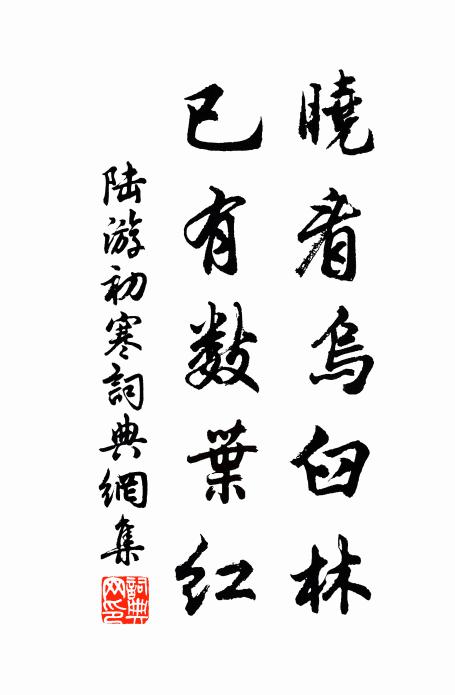 曉看烏臼林
已有數葉紅
陸游初寒詞典網集
詞典网印